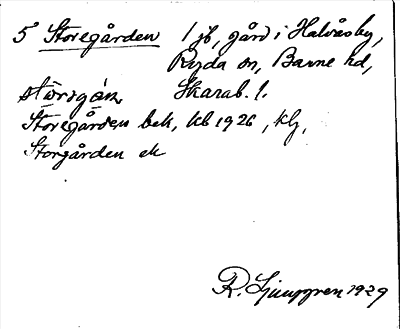 5 Storegården 1 jb, gård i Halvåsby,
Ryda sn, Barne hd,
störrgån Skarab. l.
Storegården bek, kb 1926, klj,
Storgården ek
R. Ljunggren 1929